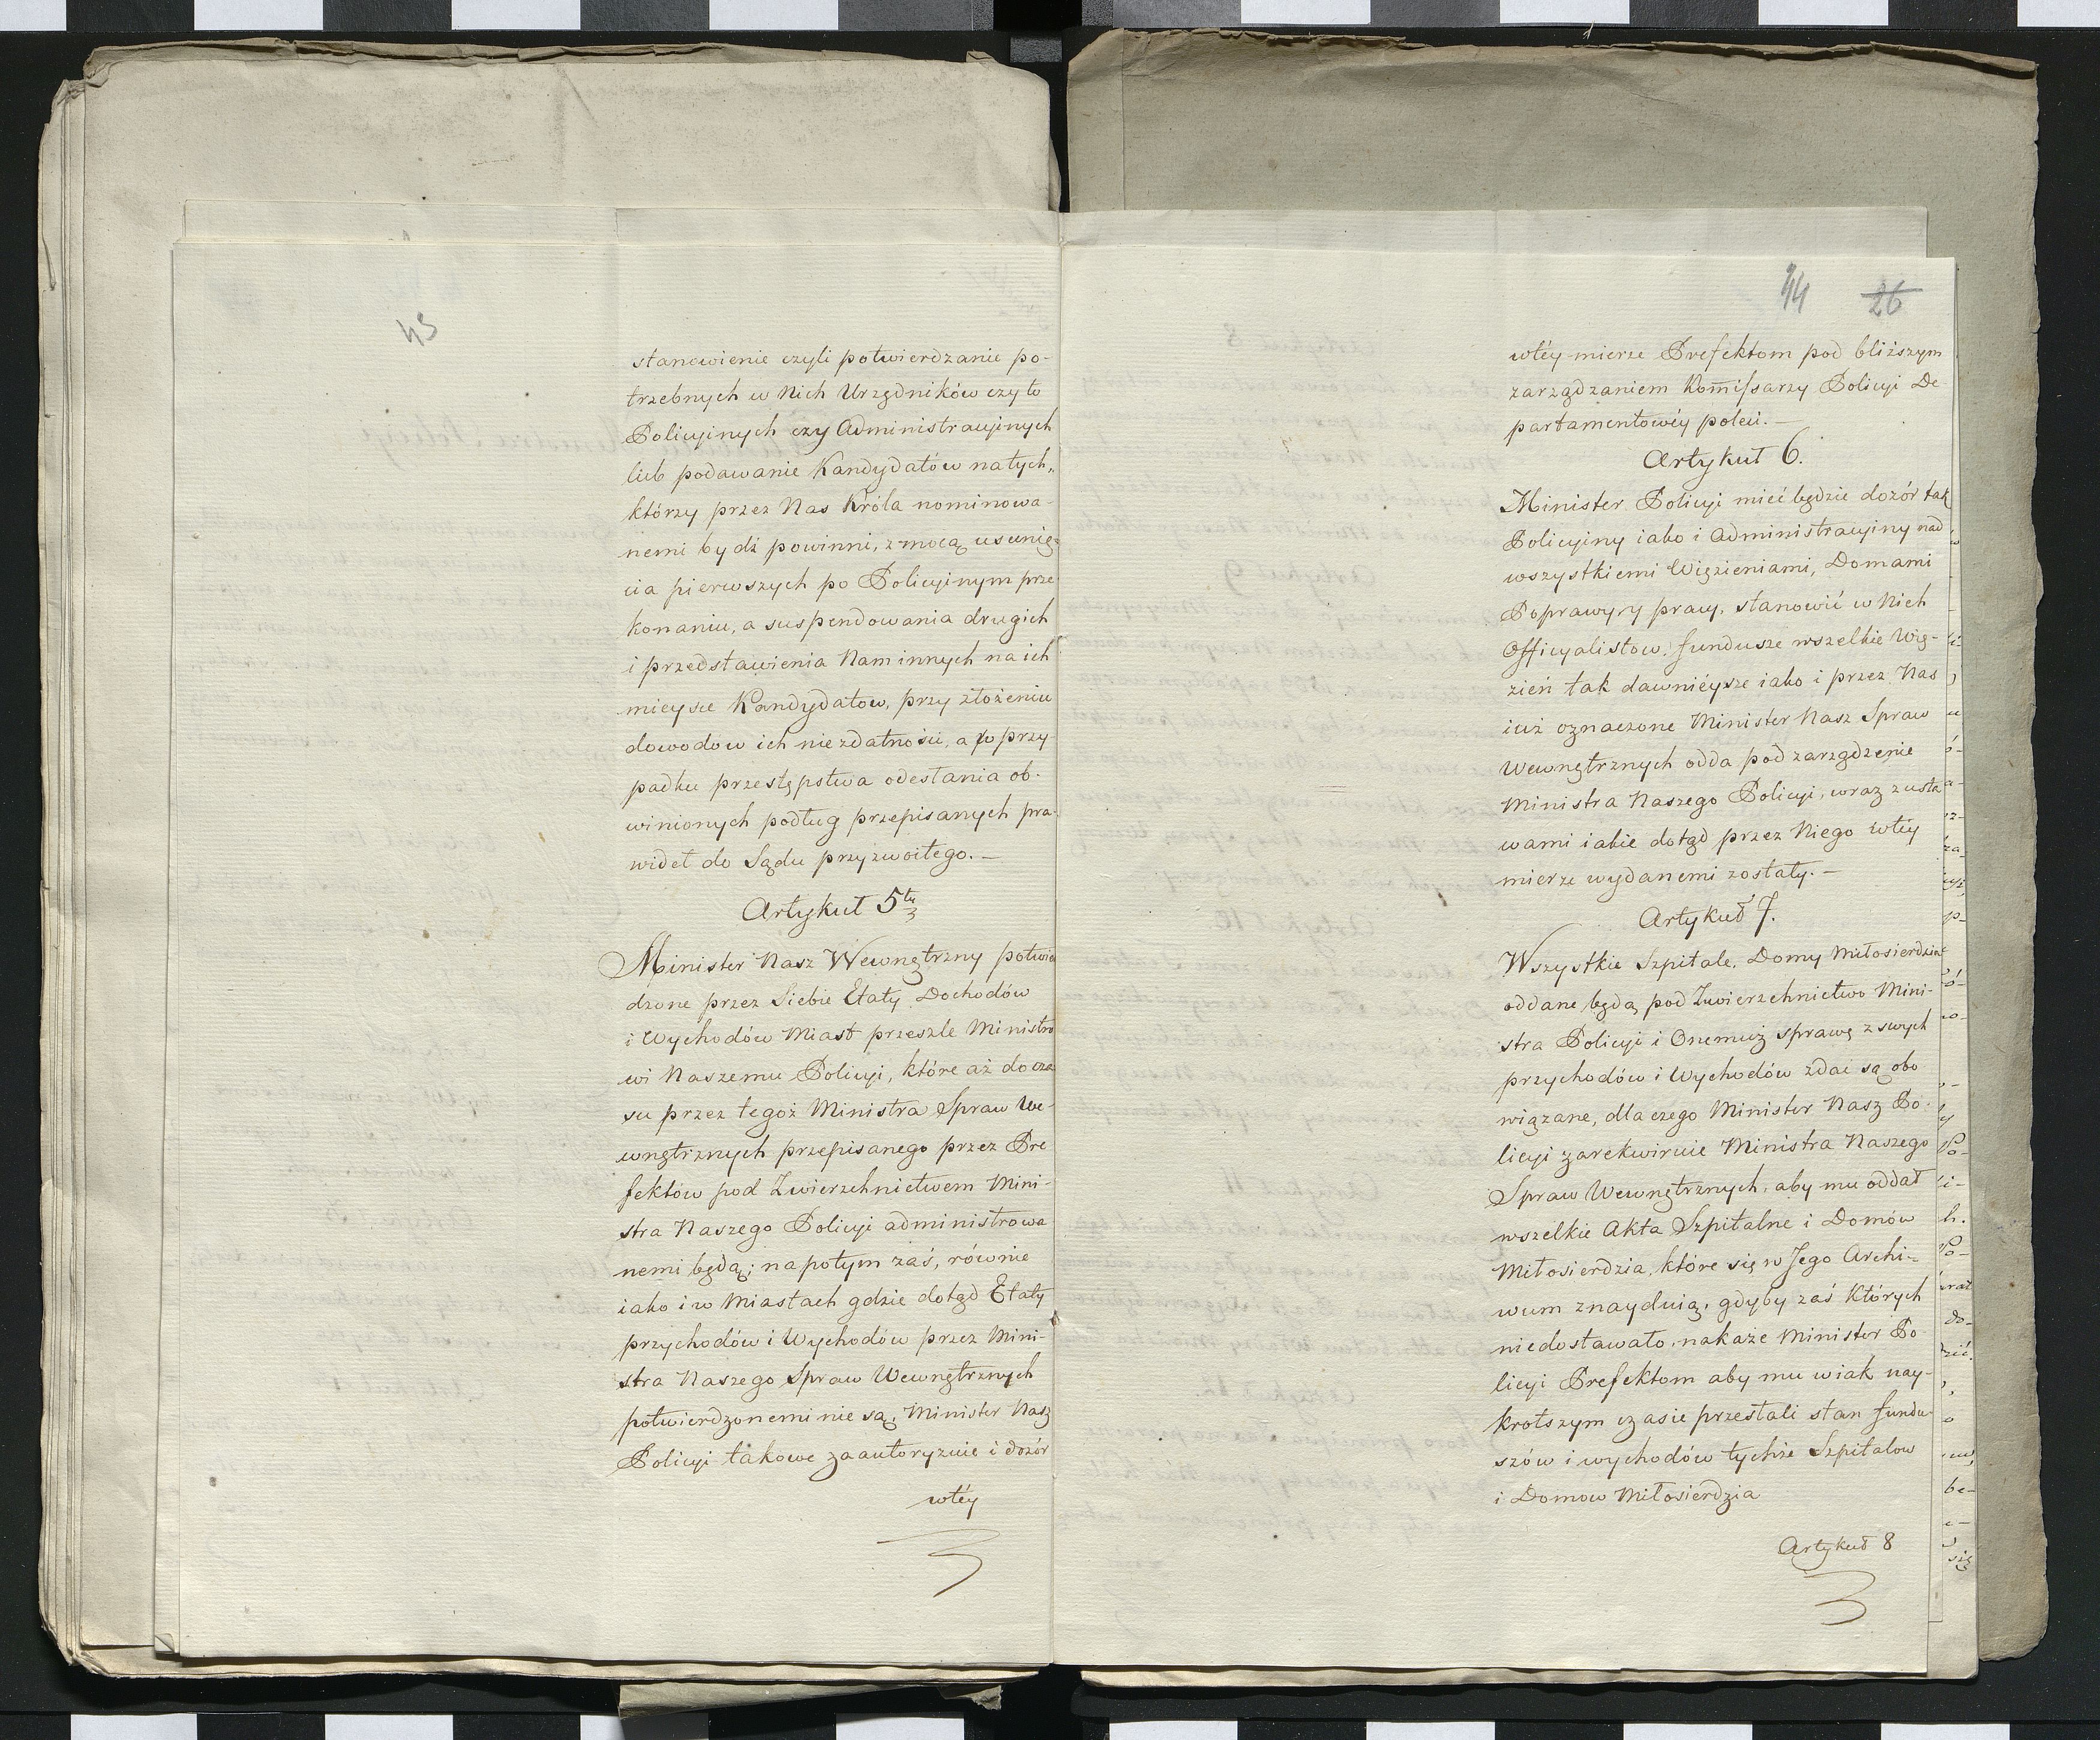 43
stanowienie czyli potwierdzanie po-
trzebnych w Nich Urzędników czyto
Policyinych czy Administracyinych
lub podawanie Kandydatów na tych,
którzy przez Nas Króla nominowa-
nemi bydź powinni, z mocą usunię-
cia pierwszych po Policyinym prze
konaniu, a suspendowania drugich
i przedstawienia Nam innych na ich
mieysce Kandydatow, przy złożeniu
dowodow ich niezdatności, a po przy-
padku przestępstwa odesłania ob-
winionych podług przepisanych pra-
wideł do Sądu przyzwoitego. —
Artykuł 5ty
Minister Nasz Wewnętrzny potwier
dzone przez Siebie Etaty Dochodów
i Wychodów Miast prześle Ministro
wi Naszemu Policyi, które aż do cza
su przez tegoż Ministra Spraw We-
wnętrznych przepisanego przez Pre
fektów pod Zwierzchnictwem Mini-
stra Naszego Policyi administrowa
nemi będą; napotym zaś, równie
iako i w Miastach gdzie dotąd Etaty
przychodów i Wychodów przez Mini-
stra Naszego Spraw Wewnętrznych
potwierdzonemi nie są, Minister Nasz
Policyi takowe zaautoryzuie i dozór
wtéy
44 26
wtéy mierze Prefektom pod bliższym
zarządzaniem Kommissarzy Policyi De-
partamentowéy poleci. —
Artykuł 6.
Minister Policyi mieć będzie dozór tak
Policyiny iako i Administracyiny nad
wszystkiemi Więzieniami, Domami
Poprawy y pracy, stanowić w Nich
Officyalistow, fundusze wszelkie Wię-
zień tak dawniéysze iako i przez Nas
iuż oznaczone Minister Nasz Spraw
Wewnętrznych odda pod zarządzenie
Ministra Naszego Policyi, wraz z usta
wami iakie dotąd przez Niego wtéy
mierze wydanemi zostały. —
Artykuł 7.
Wszystkie Szpitale, Domy Miłosierdzia
oddane będą pod Zwierzchnictwo Mini-
stra Policyi i Onemuż sprawę z swych
przychodów i Wychodów zdać są obo
wiązane, dla czego Minister Nasz Po-
licyi zarekwiruie Ministra Naszego
Spraw Wewnętrznych, aby mu oddał
wszelkie Akta Szpitalne i Domów
Miłosierdzia, które się w Jego Archi-
wum znayduią, gdyby zaś których
niedostawało, nakaże Minister Po
licyi Prefektom aby mu wiak nay-
krotszym czasie przesłali stan fundu-
szów i wychodów tychże Szpitalow
i Domow Miłosierdzia
Artykuł 8